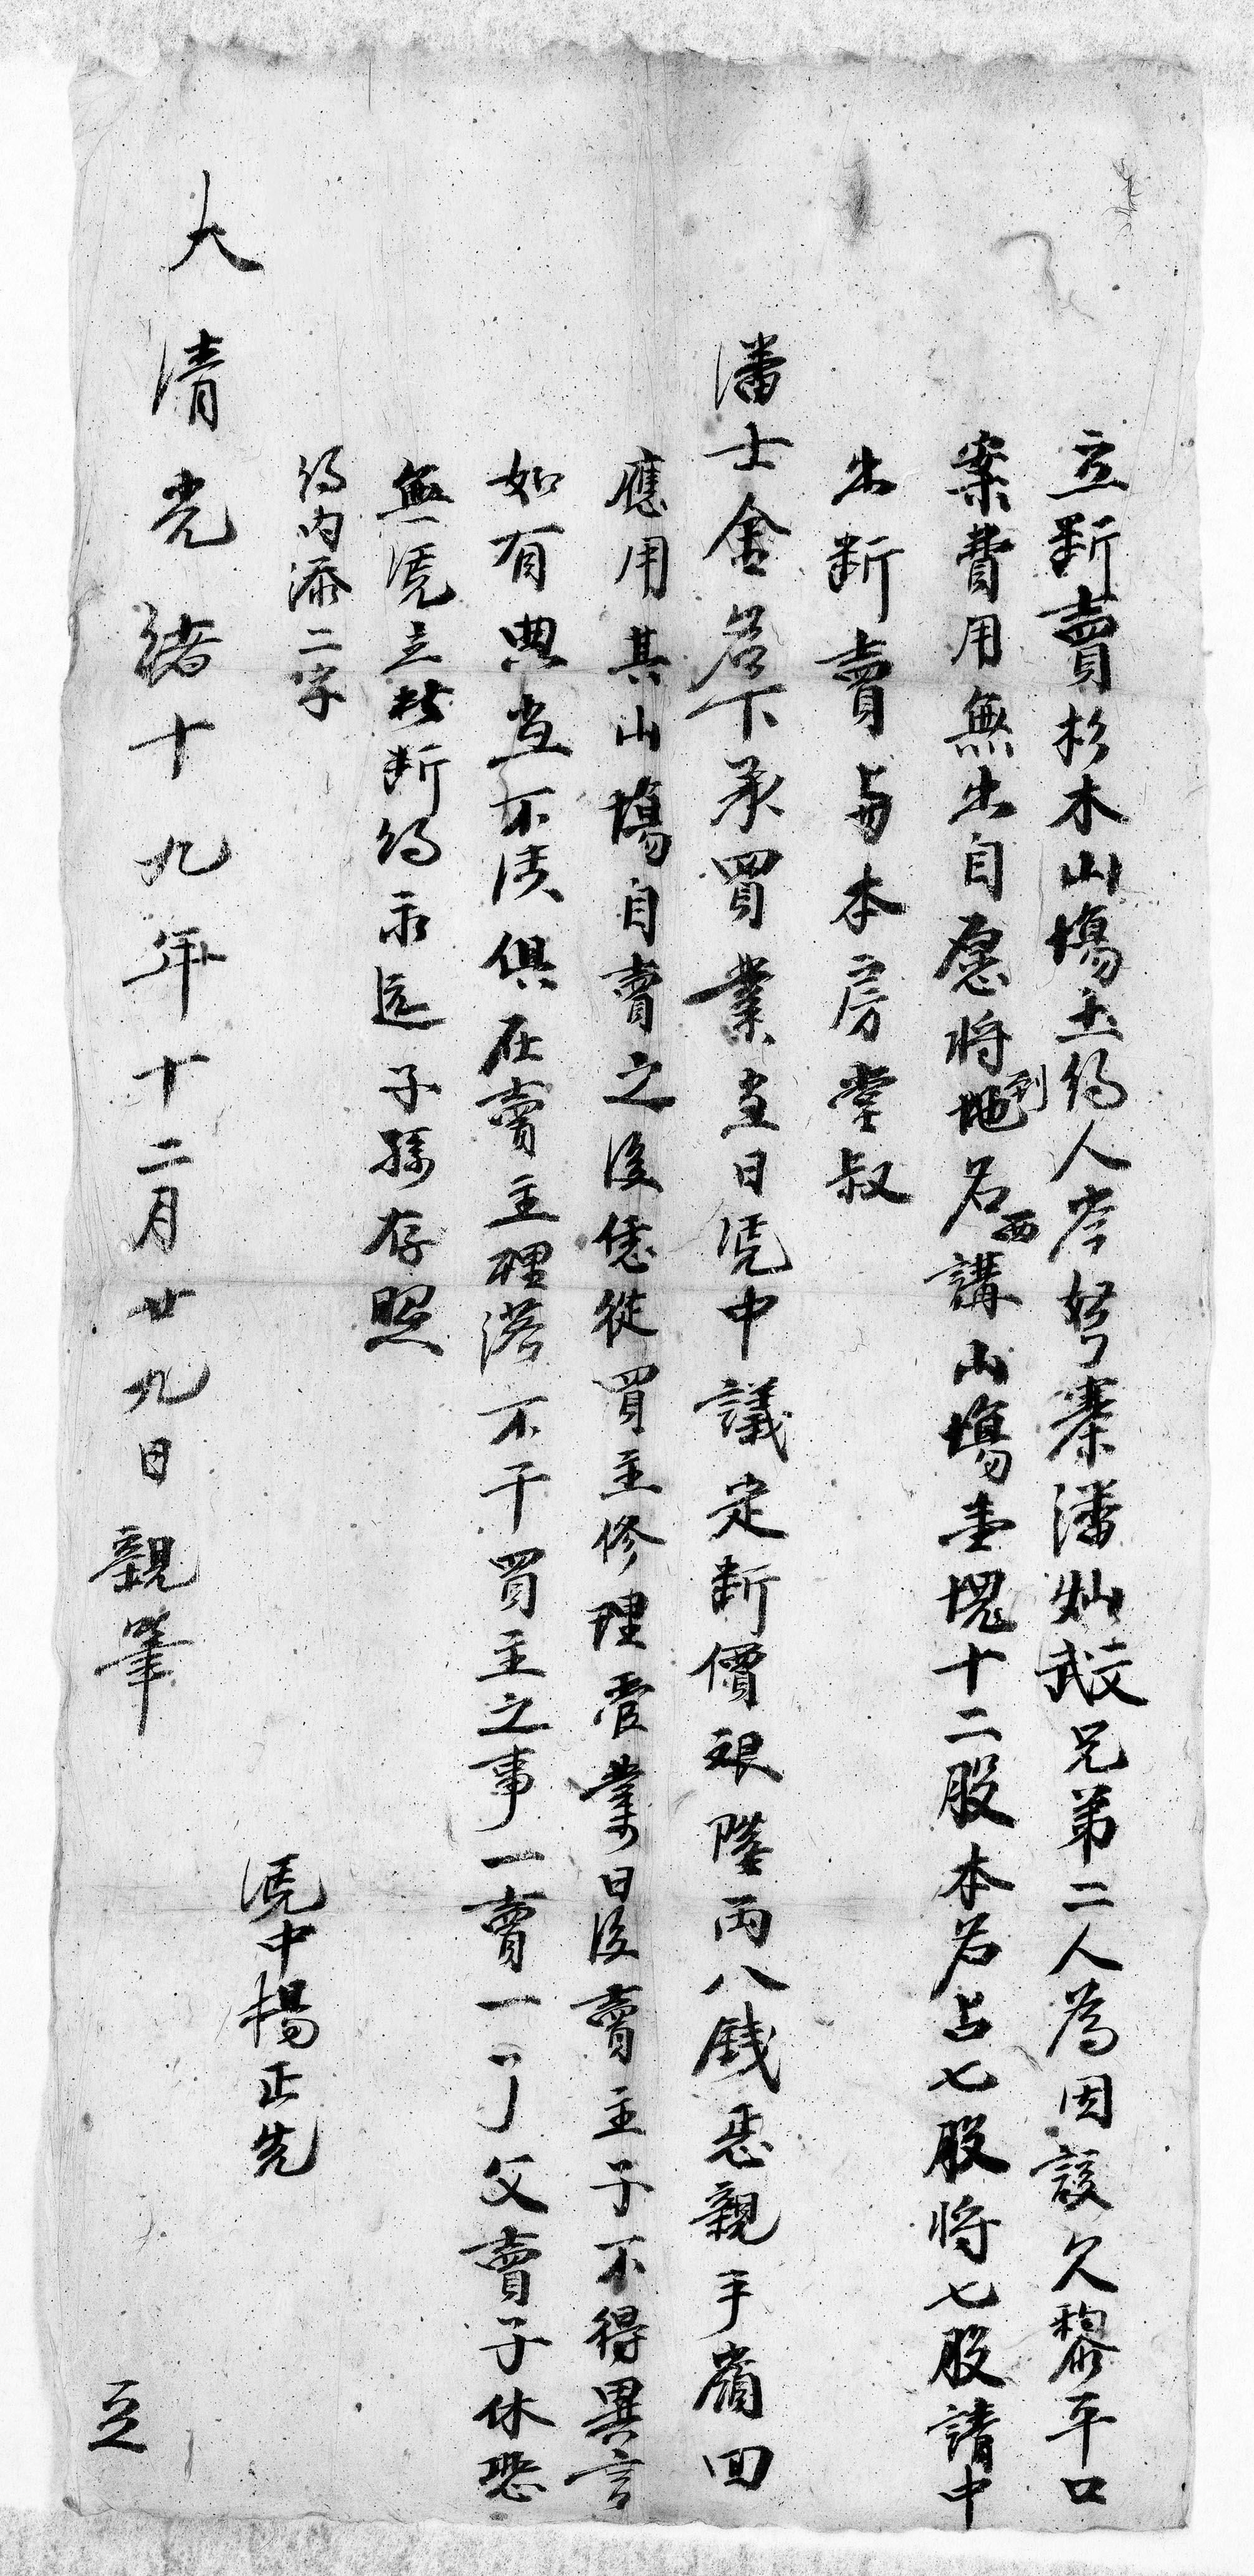 立斷賣杉木山塲土約人岑努寨潘灿文武兄弟二人為因該欠黎平口
案費用無出自愿將到地名西講山塲壹塊十二股本名占七股將七股請中
出斷賣與本房堂叔
潘士舍名下承買業當日凴中議定斷價銀陸両八錢悉親手領回
應用其山塲自賣之後恁從買主修理管業日後賣主子不得異言
如有典當不清俱在賣主理落不干買主之事一賣一了父賣子休恐
無凴立此斷約永遠子孫存照
約內添二字
凴中楊正先
大清光緒十九年十二月廿九日親筆 立